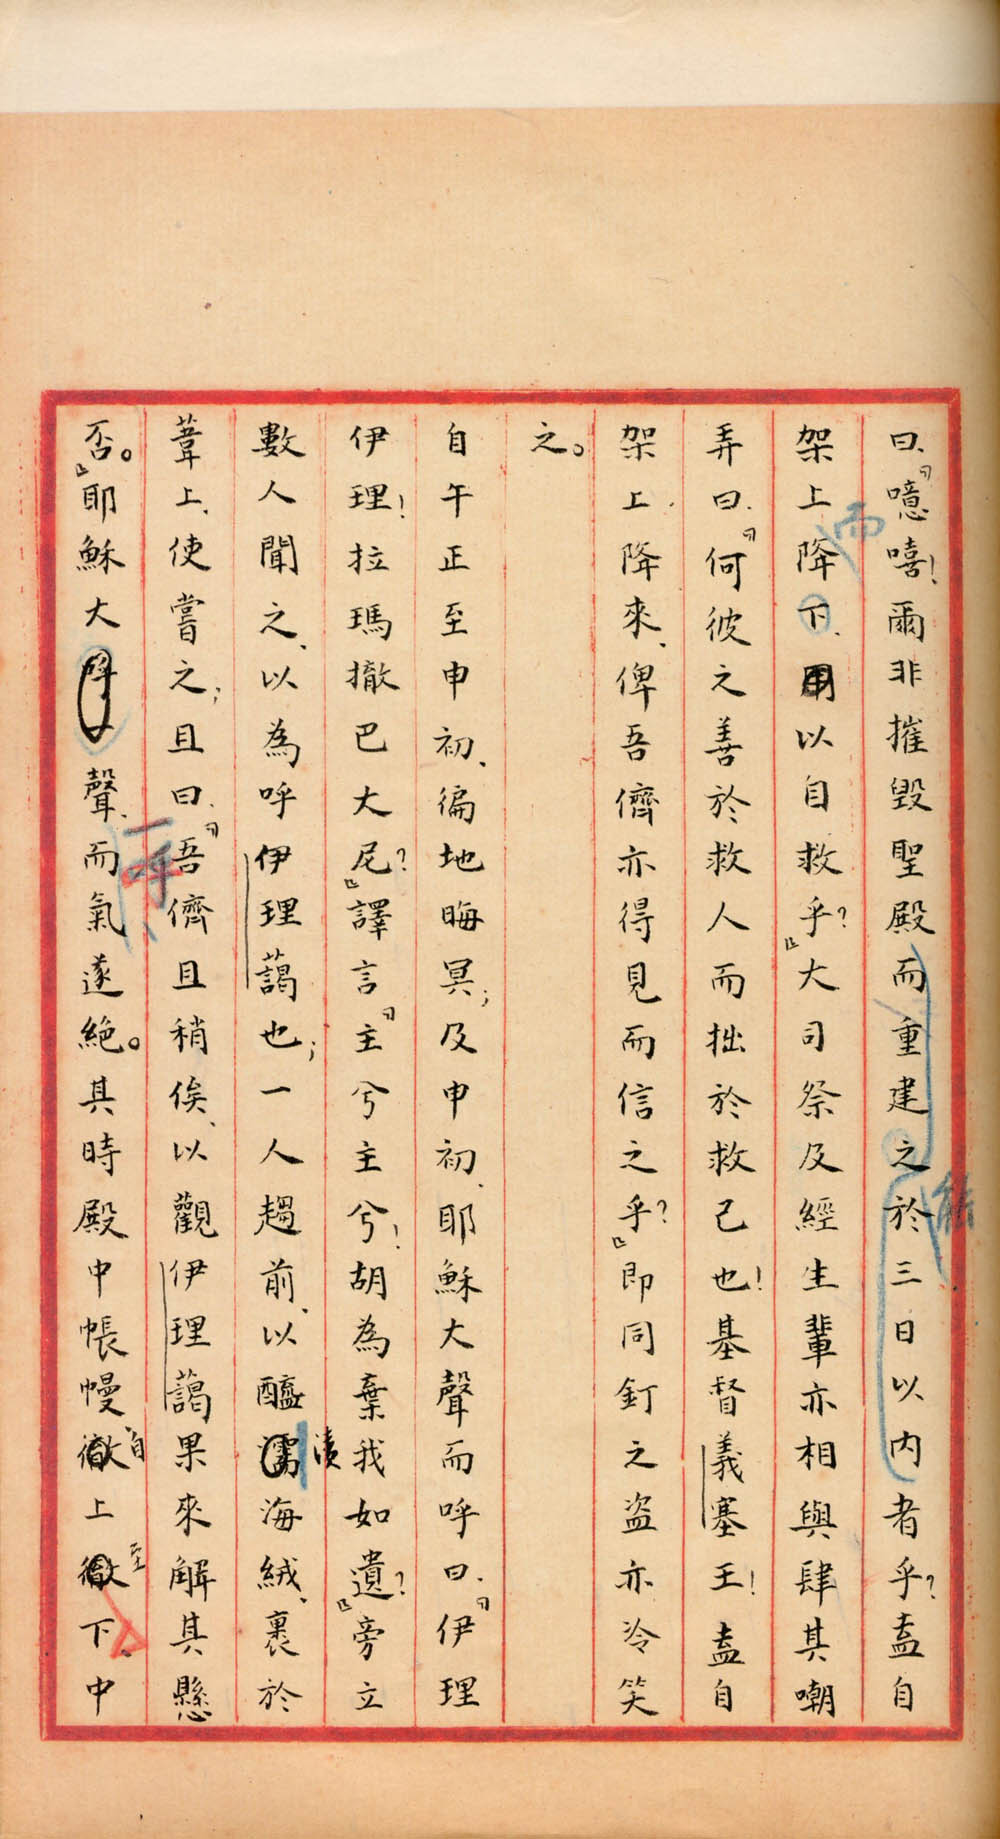 曰、「噫嘻！爾非摧毀聖殿而重建之於三日以内者乎？盍自
能
架上降下、用以自救乎？」大司祭及經生輩亦相與肆其嘲
而
弄曰、「何彼之善於救人而拙於救己也！基督義塞王！盍自
架上降來、俾吾儕亦得見而信之乎？」即同釘之盜亦冷笑
之。
自午正至申初、徧地晦冥；及申初、耶穌大聲而呼曰、「伊理
伊理！拉瑪撤巴大尼？」譯言「主兮主兮！胡為棄我如遺？」旁立
數人聞之、以為呼伊理藹也；一人趨前、以醯濡海絨、裹於
漬
葦上、使嘗之；且曰、「吾儕且稍俟、以觀伊理藹果來解其懸
一呼
否。」耶穌大呼聲、而氣遂絕。其時殿中帳幔徹上徹下、中
自
至